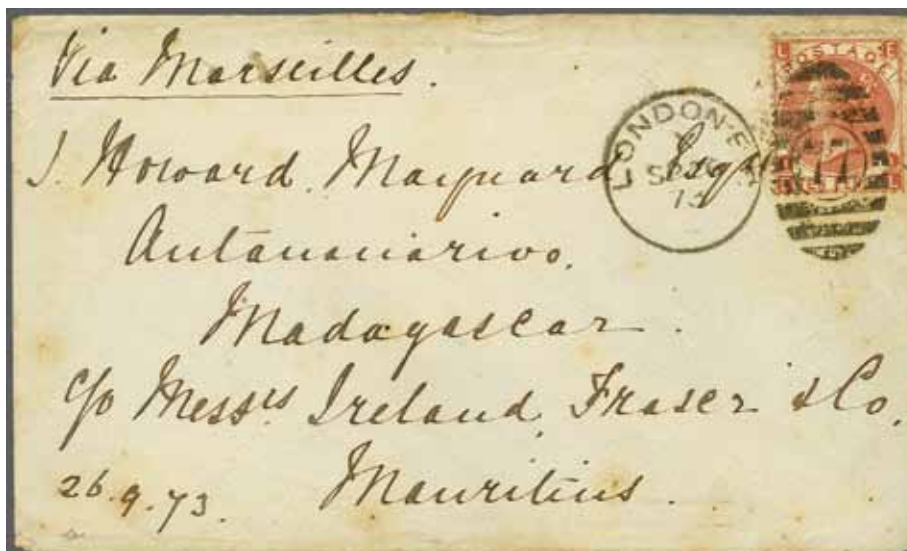 Via Marseilles.
J. Howard Maynard Esqre
Antananarivo.
Madagascar.
c/o Messrs Ireland, Fraser & Co.
Mauritius.
26.9.73.
LONDON-E
SP
73
POSTAGE
L E
77
E L